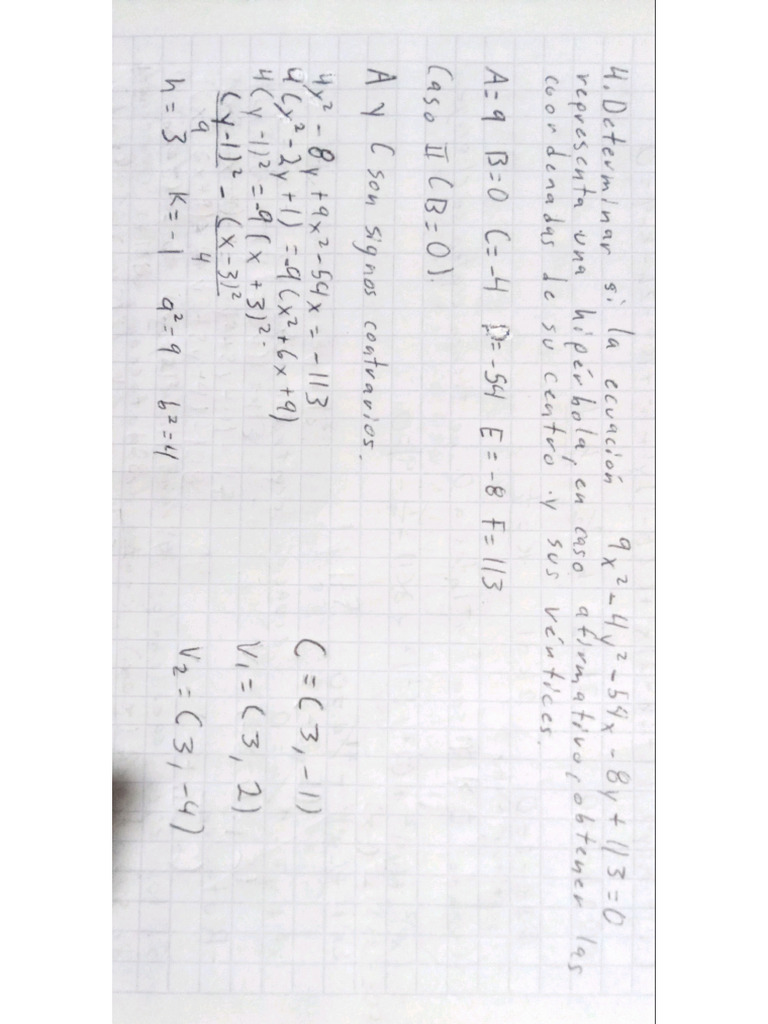 4. Determinar si la ecuación 9x² - 4y² - 54x - 8y + 113 = 0
representa una hipérbola, en caso afirmativo, obtener las
coordenadas de su centro y sus vértices.
A = 9 B = 0 C = -4 D = -54 E = -8 F = 113
Caso II (B = 0).
A y C son signos contrarios.
4y² - 8y + 9x² - 54x = -113
4(y² - 2y + 1) = -9(x² + 6x + 9)
4(y - 1)² = -9(x + 3)²
(y-1)²/9 - (x-3)²/4
h = 3 k = -1 a² = 9 b² = 4
C = (3, -1)
V1 = (3, 2)
V2 = (3, -4)